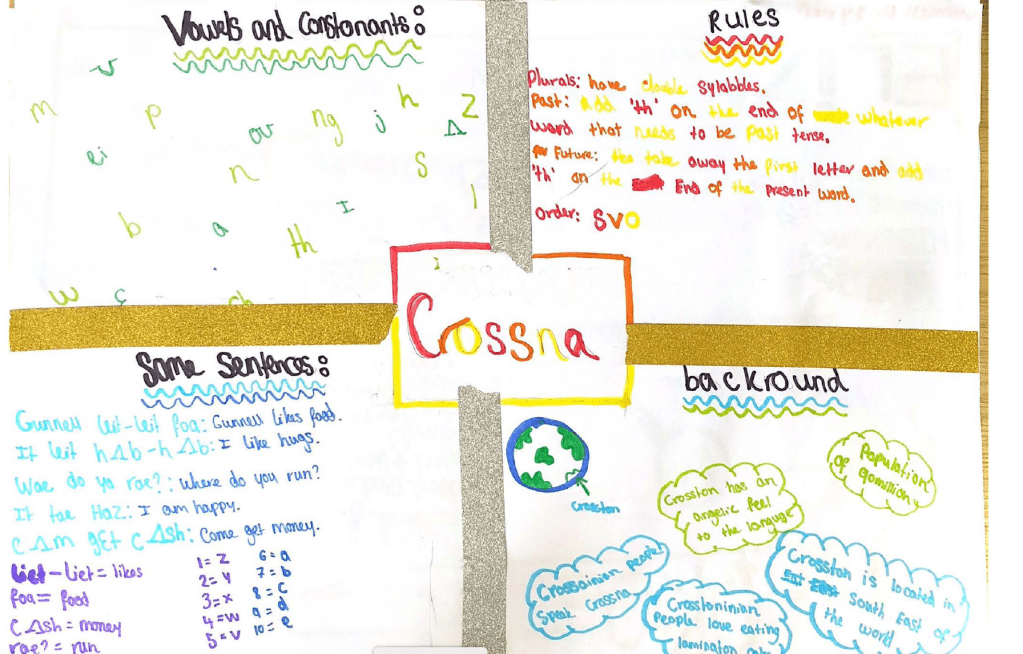 Vowels and Constonants:
v
m
p
ov
ng
j
h
Z
Λ
ei
n
S
l
b
a
I
th
w
c
ch
Rules
Plurals: have double Sylabbles.
Past: Add 'th' on the end of whatever
word that needs to be past tense.
Future: the take away the first letter and add
'th' on the End of the Present word.
Order: SVO
I
Crossna
Some Sentences:
Gunnell leit-leit foa: Gunnell likes food.
It leit hΔb-hΔb: I like hugs.
Wae do ya rae?: where do you run?
It tae Haz: I am happy.
cΔm get cΔsh: Come get money.
Liet-Liet = likes
foa = food
cΔsh = money
rae? = run
1 = Z
2 = Y
3 = X
4 = W
5 = V
6 = a
7 = b
8 = c
9 = d
10 = e
backround
Crosston
Population
of 90million
Crosston has an
angelic feel
to the language
Crossoinion people
Speak Crossna
Crosstoninian
People love eating
lamington
Crosston is located in
South East of
the world